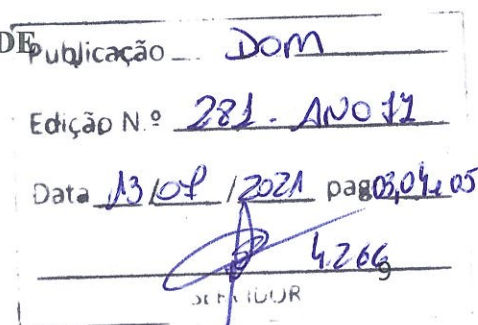 DE
Publicação DOM
Edição N.º 281 - ANO 11
Data 13/07/2021 pag 03,04 e 05
4.266
SERVIDOR